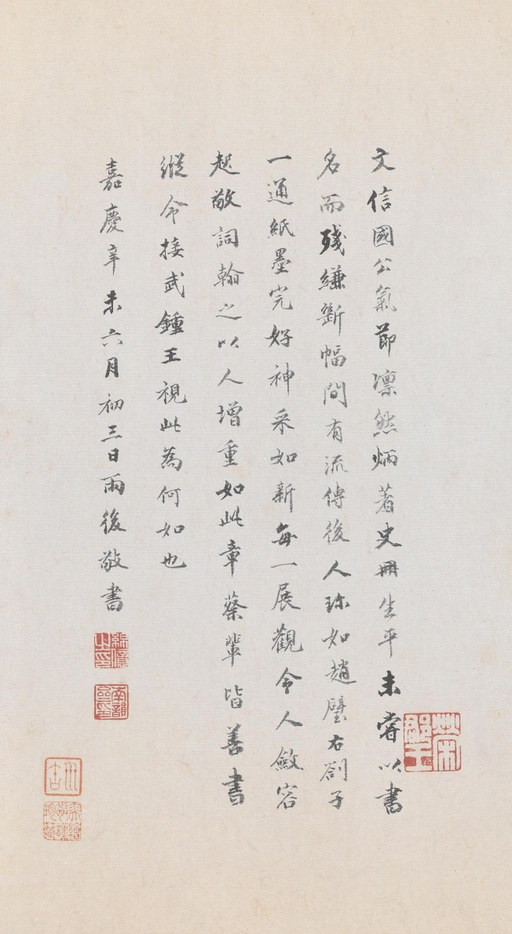 文信國公氣節凛然炳著史冊生平未嘗以書
名而殘縑斷幅間有流傳後人珎如趙璧右劄子
一通紙墨完好神采如新每一展觀令人斂容
起敬詞翰之以人增重如此章蔡輩皆善書
縱令接武鍾王視此為何如也
嘉慶辛未六月初三日雨後敬書